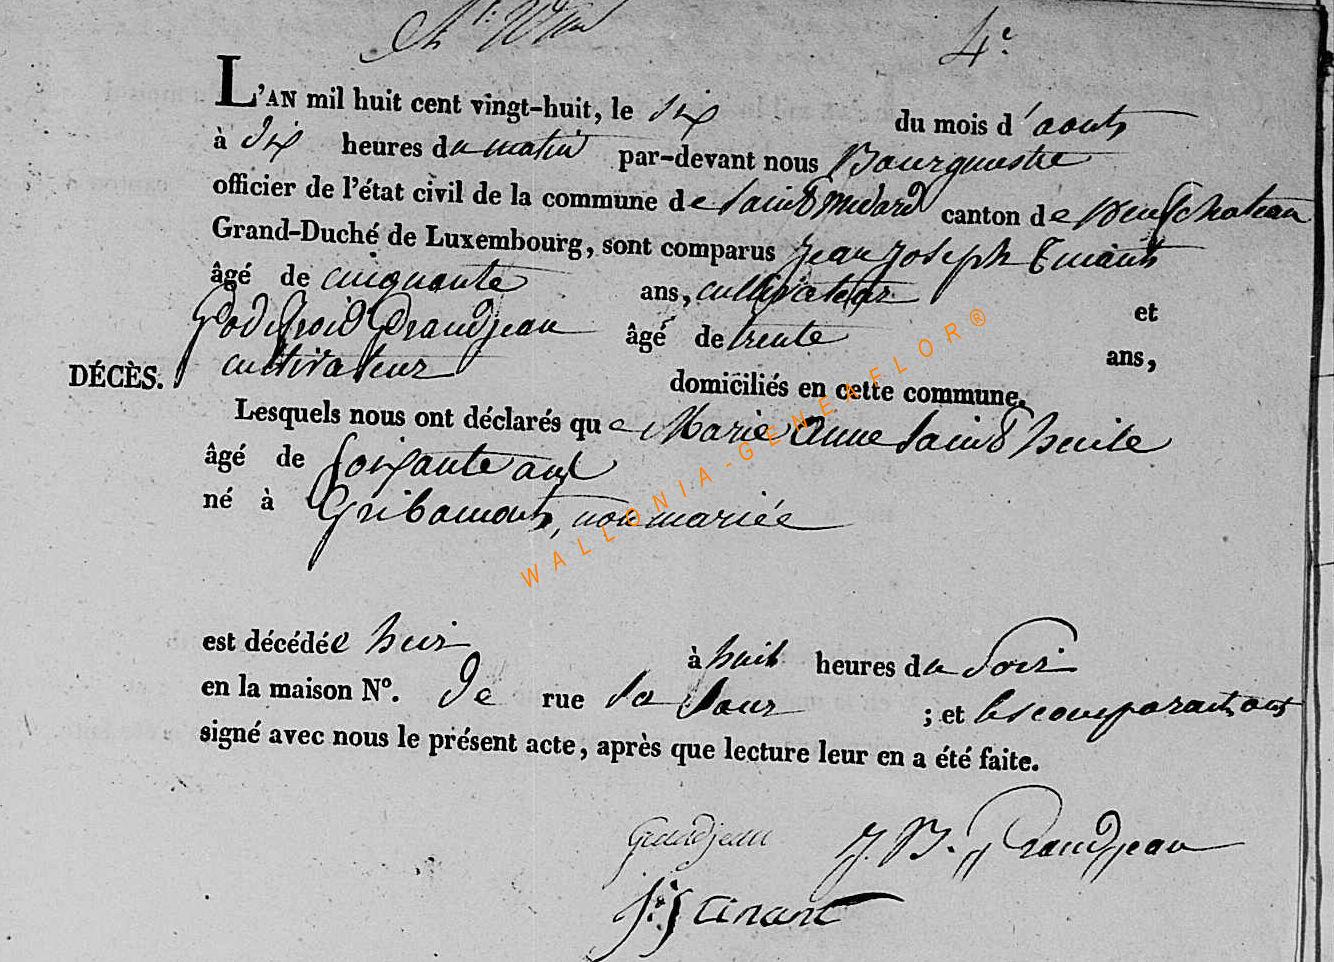 4e.
L'AN mil huit cent vingt-huit, le six du mois d'aout
à dix heures du matin par-devant nous Bourguestre
officier de l'état civil de la commune de Saint Medard canton de Neufchateau
Grand-Duché de Luxembourg, sont comparus Jean Joseph Tinant
âgé de cinquante ans, cultivateur et
Godefroid Grandjean âgé de trente ans,
DÉCÈS. cultivateur domiciliés en cette commune.
Lesquels nous ont déclarés que Marie Anne Saint huile
âgé de soixante ans
né à Gribamont, non mariée
est décédée hier à huit heures du Soir
en la maison N°. de rue la Cour ; et les comparants ont
signé avec nous le présent acte, après que lecture leur en a été faite.
Grandjean J. B. Grandjean
J: J Tinant
WALLONIA-GENEAFLOR®